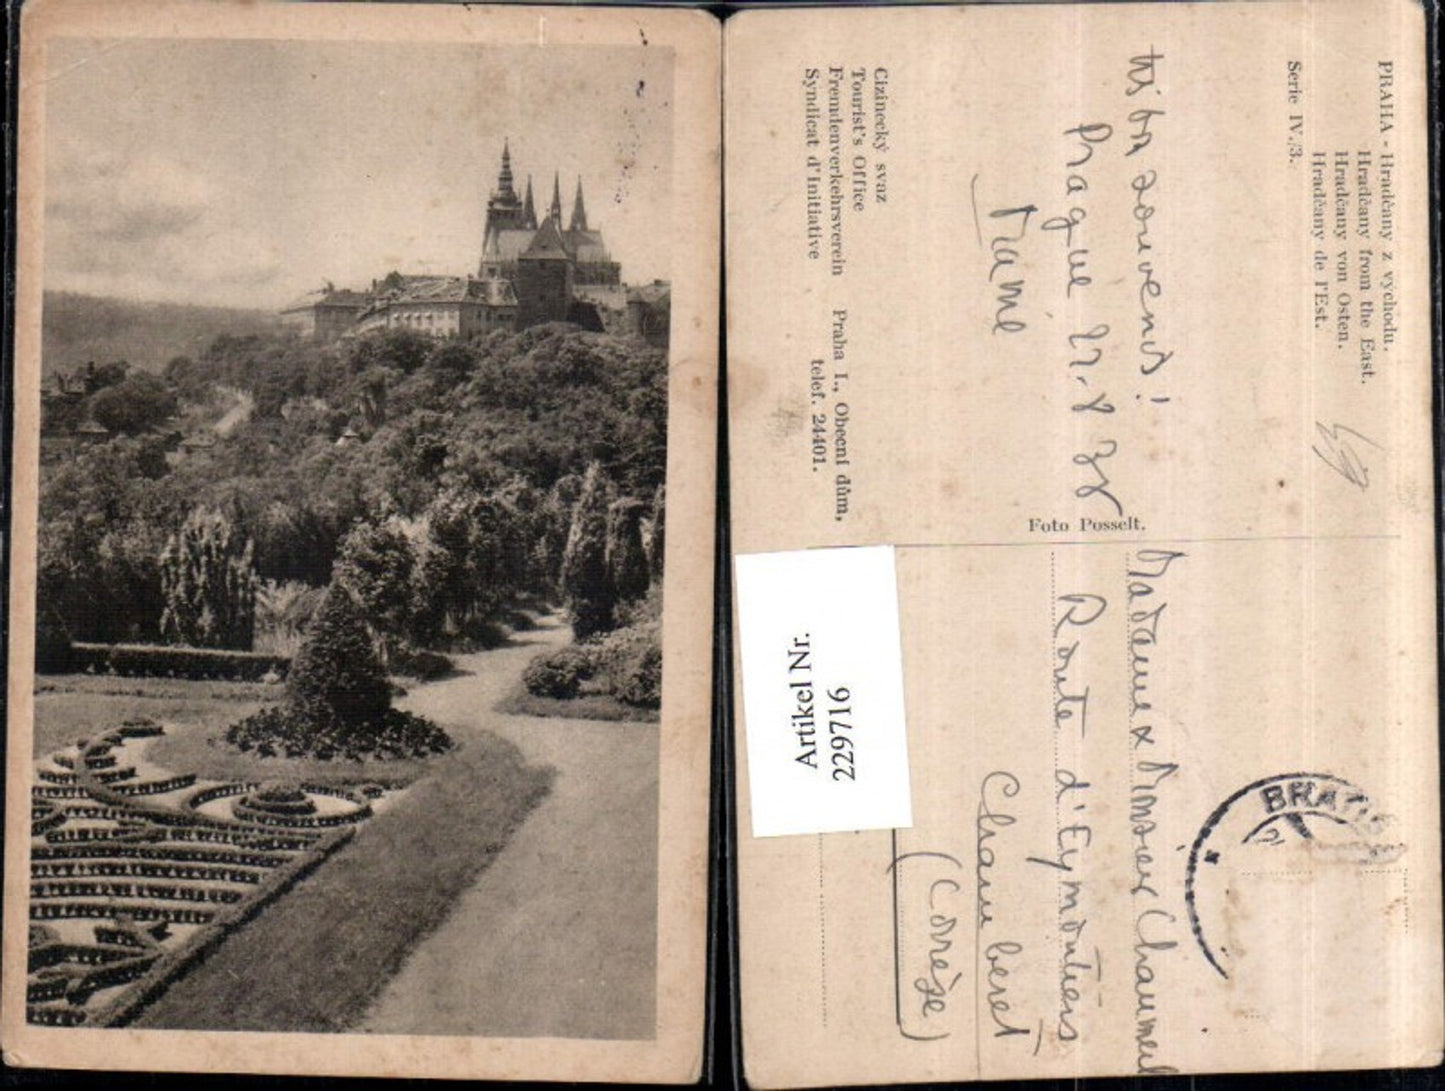 PRAHA - Hradčany z východu.
Hradčany from the East.
Hradčany von Osten.
Hradčany de l'Est.
Serie IV./3.
souvenir!
Prague 27.8 38
Mainé
Cizinecký svaz
Tourist's Office
Fremdenverkehrsverein
Syndicat d'Initiative
Praha I., Obecní dům,
telef. 24401.
Foto Posselt.
Madame & Monsieur Chaumeil
Route d'Eymoutiers
Chamberet
(Corrèze)
BRATIS
Artikel Nr.
2299716